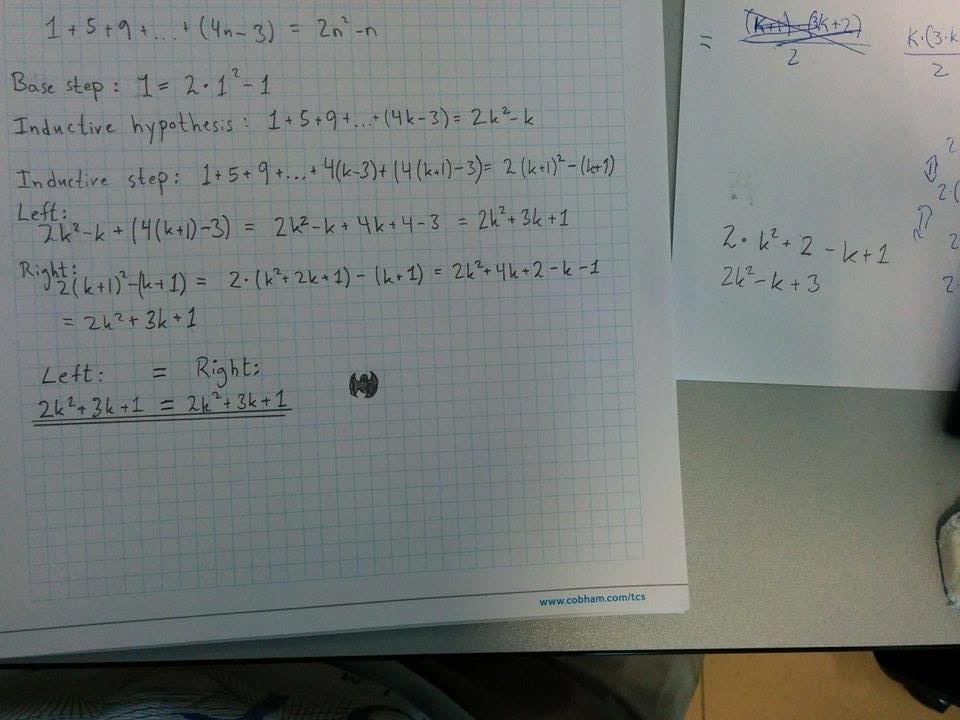 1 + 5 + 9 + ... + (4n - 3) = 2n² - n
Base step: 1 = 2 · 1² - 1
Inductive hypothesis: 1 + 5 + 9 + ... + (4k - 3) = 2k² - k
Inductive step: 1 + 5 + 9 + ... + 4(k - 3) + (4(k+1) - 3) = 2(k+1)² - (k+1)
Left:
2k² - k + (4(k+1) - 3) = 2k² - k + 4k + 4 - 3 = 2k² + 3k + 1
Right:
2(k+1)² - (k+1) = 2 · (k² + 2k + 1) - (k+1) = 2k² + 4k + 2 - k - 1
= 2k² + 3k + 1
Left: = Right:
2k² + 3k + 1 = 2k² + 3k + 1
www.cobham.com/tcs
= (k+1) · (3k+2) / 2
k · (3 · k / 2
2 · k² + 2 - k + 1
2k² - k + 3